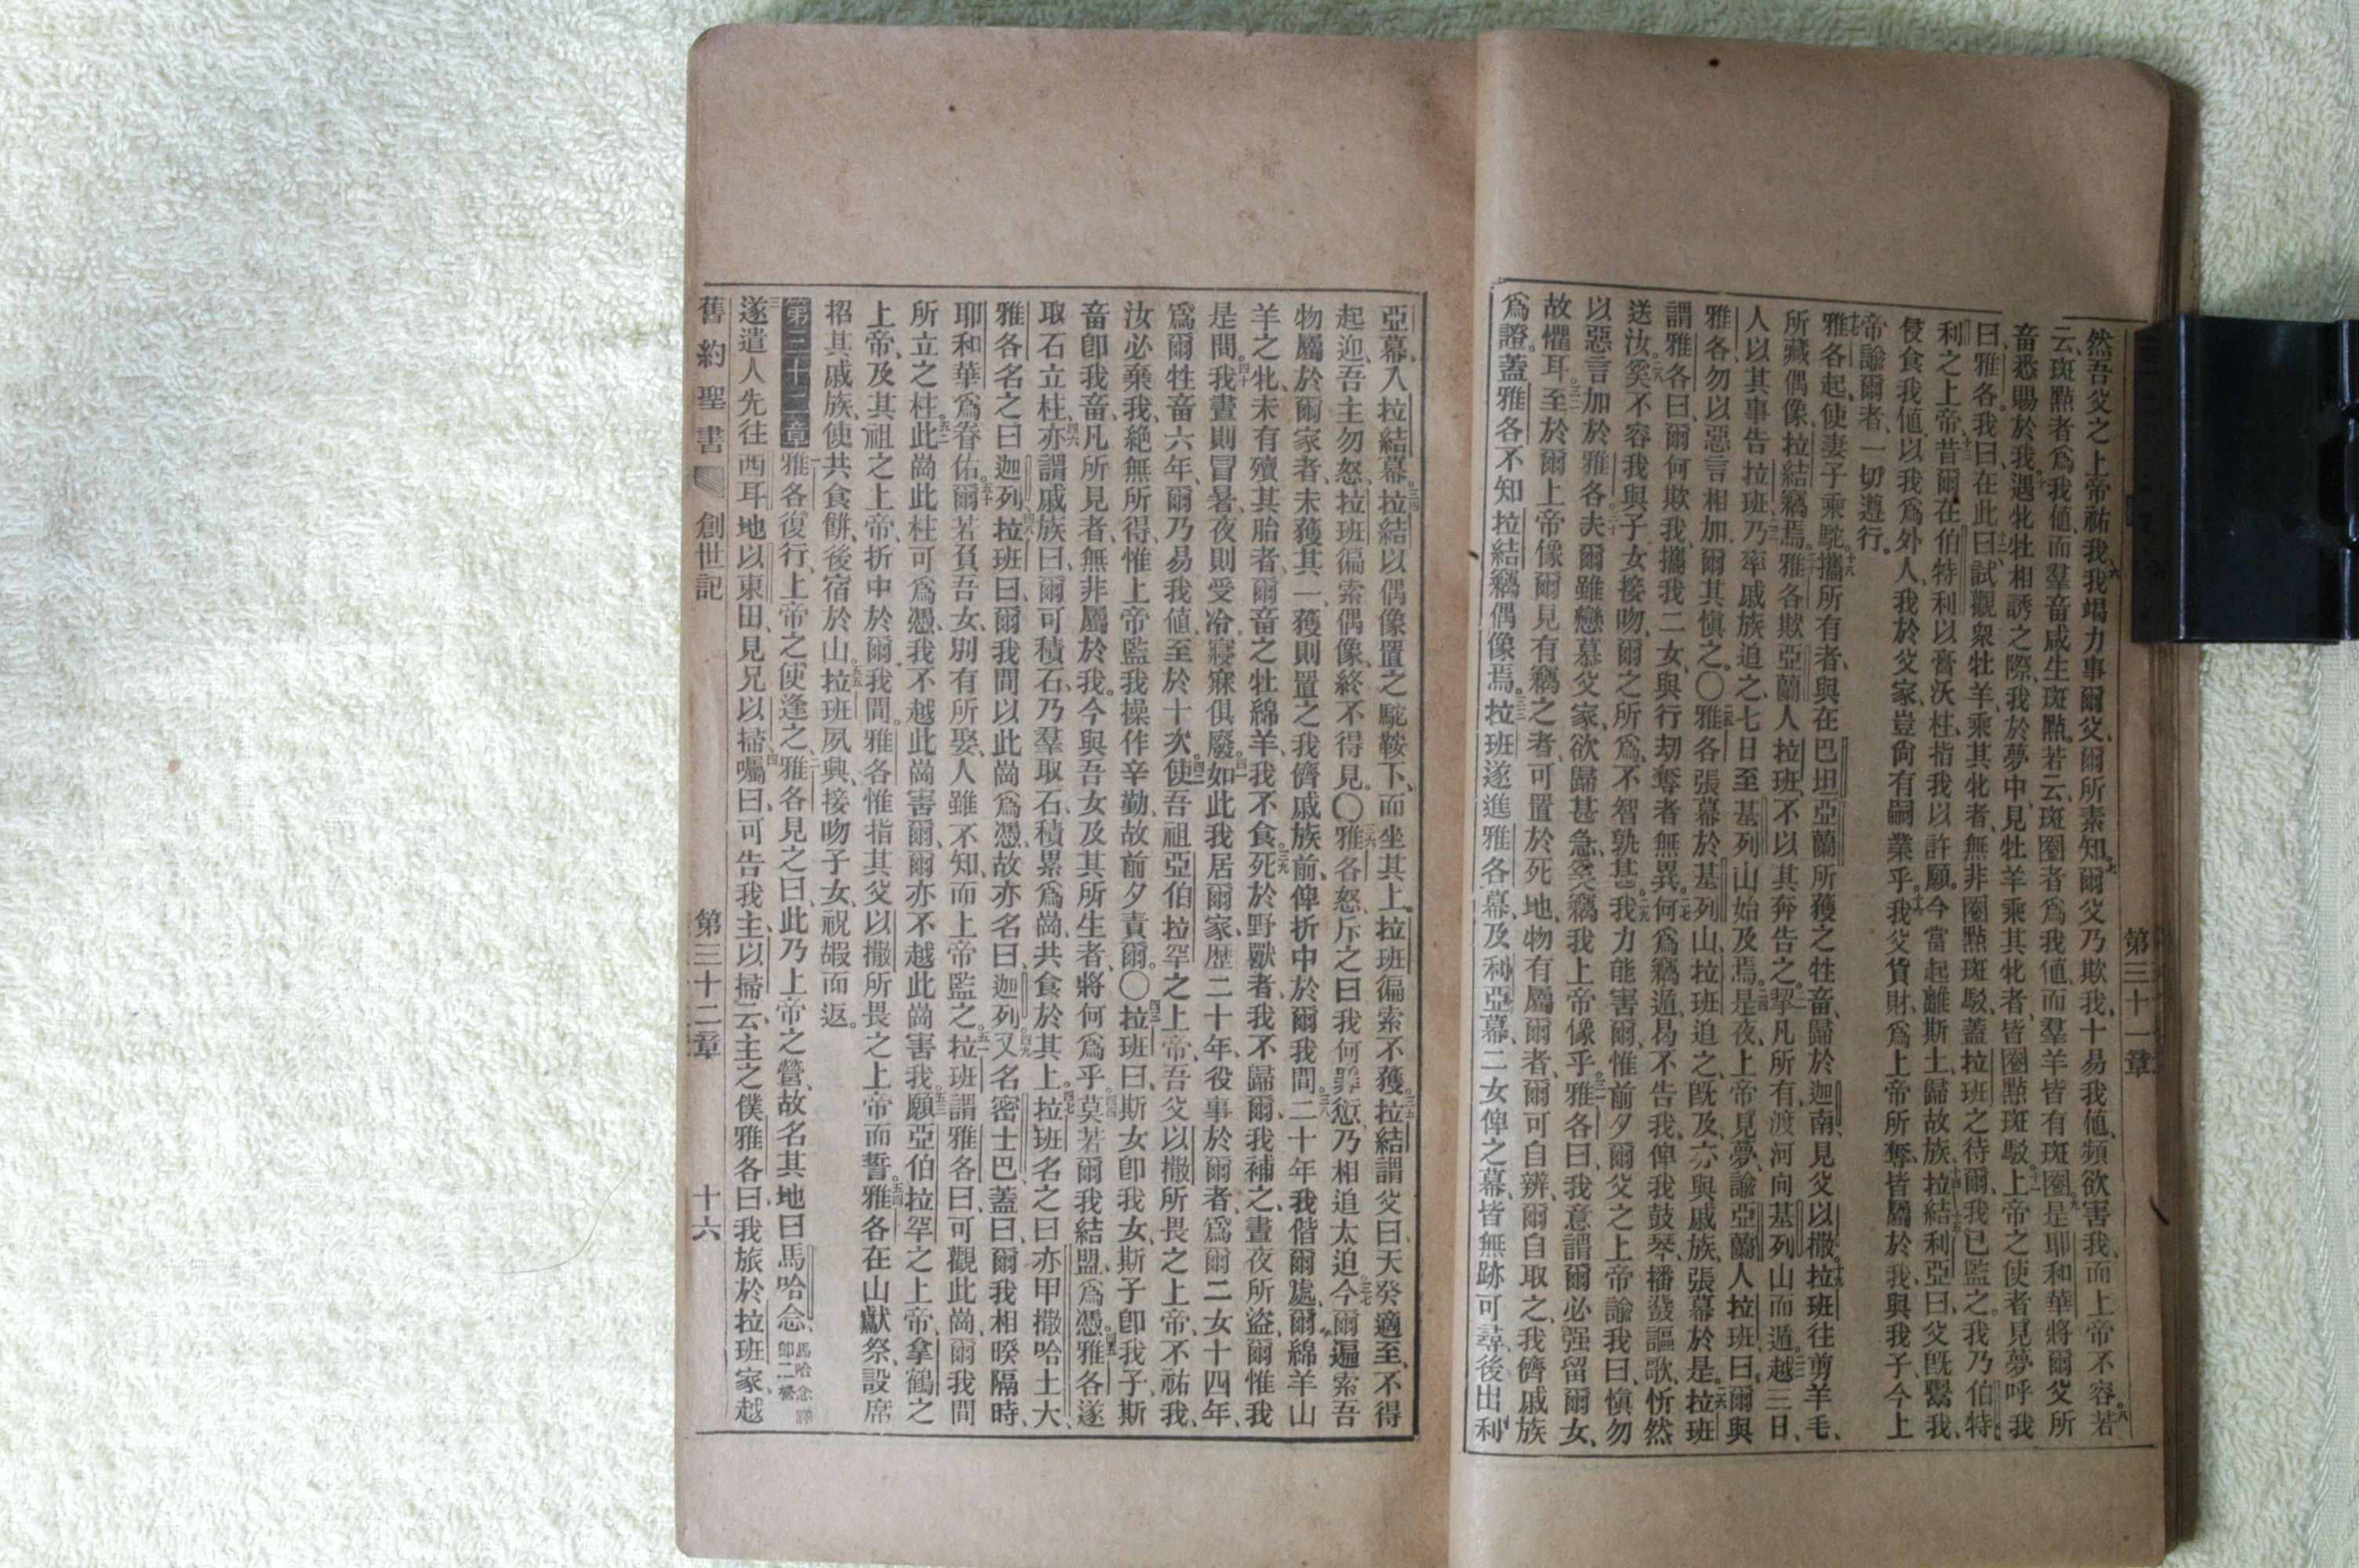 第三十一章
然吾父之上帝祐我、六我竭力事爾父、爾所素知。七爾父乃欺我、十易我値、頻欲害我、而上帝不容。八若
云、斑點者爲我値、而羣畜咸生斑點。若云、斑圈者爲我値、而羣羊皆有斑圈。九是耶和華將爾父所
畜、悉賜於我。十遇牝牡相誘之際、我於夢中、見牡羊乘其牝者、皆圈點斑駁。十一上帝之使者見夢呼我
曰、雅各。我曰、在此。十二曰、試觀衆牡羊、乘其牝者、無非圈點斑駁、蓋拉班之待爾、我已監之。十三我乃伯特
利之上帝、昔爾在伯特利以膏沃柱、指我以許願。今當起離斯土、歸故族。十四拉結利亞曰、十五父旣鬻我、
侵食我値、以我爲外人、我於父家、豈尙有嗣業乎。十六我父貨財、爲上帝所奪、皆屬於我、與我子、今上
帝諭爾者、一切遵行。
十七雅各起、使妻子乘駝。十八攜所有者、與在巴坦亞蘭所獲之牲畜、歸於迦南、見父以撒。十九拉班往剪羊毛、
所藏偶像、拉結竊焉。二十雅各欺亞蘭人拉班、不以其奔告之。二一挈凡所有、渡河向基列山而遁。二二越三日、
人以其事告拉班。二三乃率戚族追之、七日至基列山始及焉。二四是夜、上帝見夢、諭亞蘭人拉班曰、爾與
雅各勿以惡言相加、爾其愼之。〇二五雅各張幕於基列山、拉班追之、旣及、亦與戚族、張幕於是。二六拉班
謂雅各曰、爾何欺我、攜我二女、與行劫奪者無異。二七何爲竊遁、曷不告我、俾我鼓琴播鼗謳歌、忻然
送汝。二八奚不容我與子女接吻、爾之所爲、不智孰甚。二九我力能害爾、惟前夕爾父之上帝諭我曰、愼勿
以惡言加於雅各。三十夫爾雖戀慕父家、欲歸甚急、奚竊我上帝像乎。三一雅各曰、我意謂爾必强留爾女、
故懼耳。三二至於爾上帝像、爾見有竊之者、可置於死地、物有屬爾者、爾可自辨、爾自取之、我儕戚族
爲證。蓋雅各不知拉結竊偶像焉。三三拉班遂進雅各幕、及利亞幕、二女俾之幕、皆無跡可尋、後出利
亞幕、入拉結幕。三四拉結以偶像置之駝鞍下、而坐其上。拉班徧索不獲。三五拉結謂父曰、天癸適至、不得
起迎、吾主勿怒、拉班徧索偶像、終不得見。〇三六雅各怒、斥之曰、我何罪愆、乃相追太迫。三七今爾遍索吾
物、屬於爾家者、未獲其一、獲則置之我儕戚族前、俾折中於爾我間。三八二十年我偕爾處、爾綿羊山
羊之牝、未有殰其胎者、爾畜之牡綿羊、我不食。三九死於野獸者、我不歸爾、我補之、晝夜所盜、爾惟我
是問。四十我晝則冒暑、夜則受冷、寢寐俱廢。四一如此我居爾家、歷二十年、役事於爾者、爲爾二女十四年、
爲爾牲畜六年、爾乃易我値、至於十次。四二使吾祖亞伯拉罕之上帝、吾父以撒所畏之上帝、不祐我、
汝必棄我、絕無所得、惟上帝監我操作辛勤、故前夕責爾。〇四三拉班曰、斯女卽我女、斯子卽我子、斯
畜卽我畜、凡所見者、無非屬於我。今與吾女及其所生者、將何爲乎。四四莫若爾我結盟、爲憑。四五雅各遂
取石立柱、四六亦謂戚族曰、爾可積石、乃羣取石、積累爲崗、共食於其上。四七拉班名之曰亦甲撒哈土大、
雅各名之曰迦列。四八拉班曰、爾我間以此崗爲憑、故亦名曰、迦列。四九又名密士巴、蓋曰、爾我相睽隔時、
耶和華爲眷佑。五十爾若負吾女、別有所娶、人雖不知、而上帝監之。五一拉班謂雅各曰、可觀此崗、爾我間
所立之柱。五二此崗此柱可爲憑、我不越此崗害爾、爾亦不越此崗害我。五三願亞伯拉罕之上帝、拿鶴之
上帝、及其祖之上帝、折中於爾我間。雅各惟指其父以撒所畏之上帝而誓。五四雅各在山獻祭、設席
招其戚族、使共食餠、後宿於山。五五拉班夙興、接吻子女、祝嘏而返。
第三十二章 一雅各復行、上帝之使逢之、二雅各見之曰、此乃上帝之營、故名其地曰馬哈念、馬哈念譯卽二營
三遂遣人先往西耳地以東田、見兄以掃、四囑曰、可告我主以掃云、主之僕雅各曰、我旅於拉班家、越
舊約聖書 創世記 第三十二章 十六